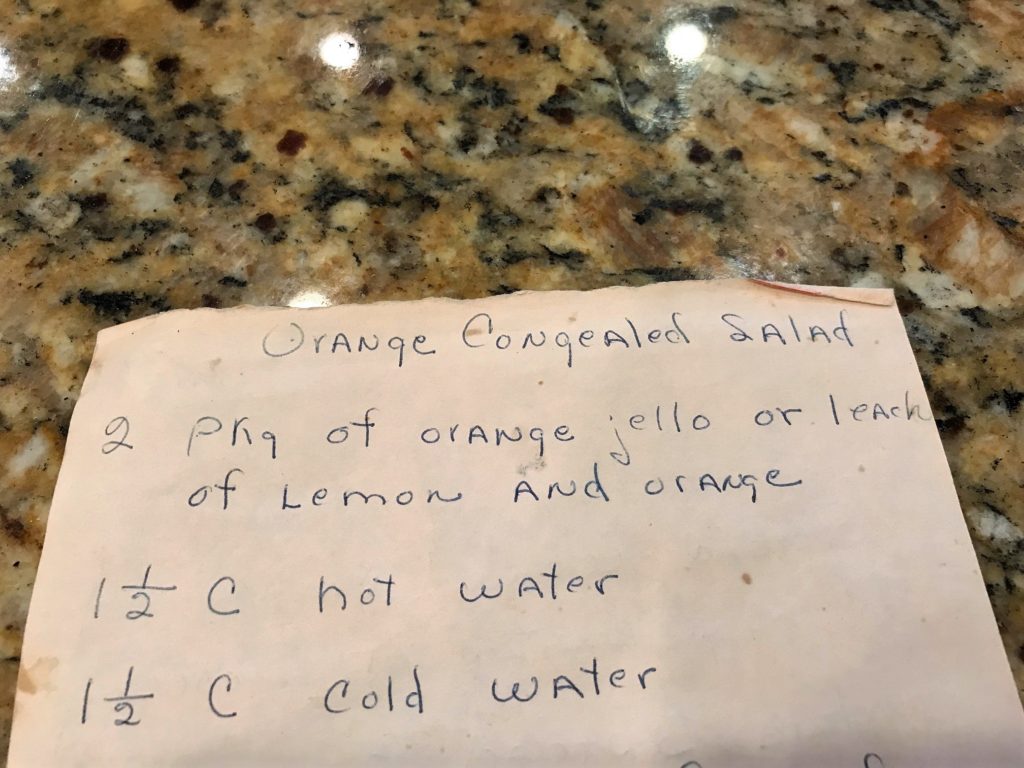 Orange Congealed Salad
2 pkg of orange jello or 1 each
of Lemon and orange
1 1/2 C hot water
1 1/2 C Cold water